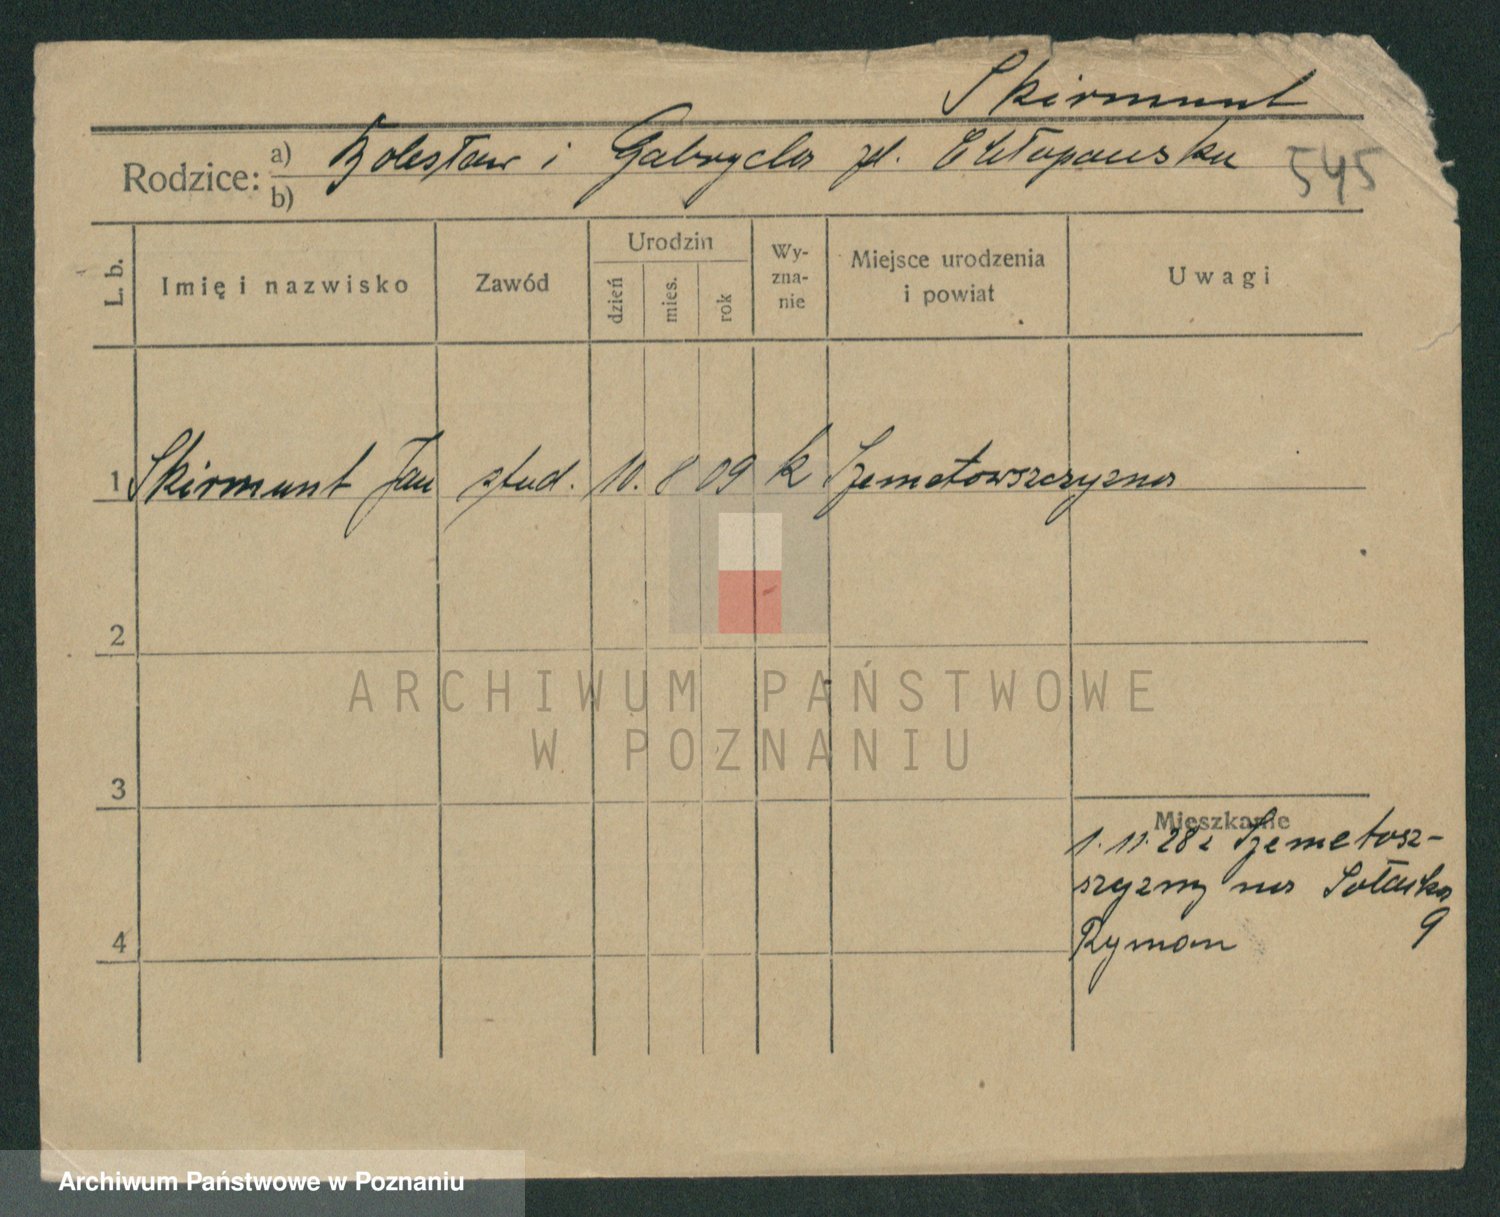 Skirmunt
Rodzice: a) Bolesław i Gabryela zd. Chłapowska 545
b)
L. b. Imię i nazwisko Zawód Urodzin dzień mies. rok Wy-zna-nie Miejsce urodzenia i powiat Uwagi
1 Skirmunt Jan stud. 10. 8 09 k Szemetowszczyzna
2
ARCHIWUM PAŃSTWOWE
W POZNANIU
3
Mieszkanie
1.11.28 z Szemetosz-
szczyzny na Sołacka
4 Ryman 9
Archiwum Państwowe w Poznaniu